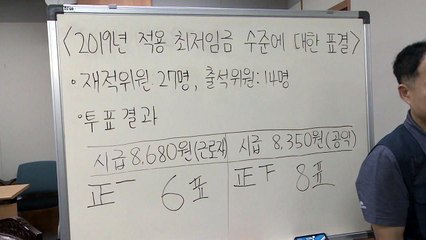 <2019년 적용 최저임금 수준에 대한 표결>
• 재적위원 27명, 출석위원: 14명
• 투표결과
시급 8,680원(근로자) 시급 8,350원(공익)
正一 6표 正下 8표